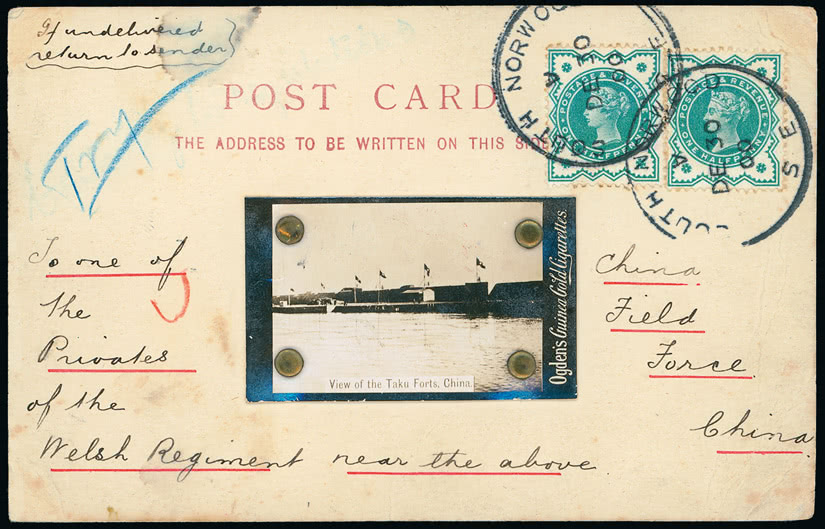 If undelivered
return to sender
Try
POST CARD
THE ADDRESS TO BE WRITTEN ON THIS SIDE
POSTAGE & REVENUE
ONE HALFPENNY
POSTAGE & REVENUE
ONE HALFPENNY
SOUTH NORWOOD
A
DE 30
00
SOUTH
A
DE 30
00
S E
To one of
the
Privates
of the
Welsh Regiment near the above
View of the Taku Forts, China.
Ogden's Guinea Gold Cigarettes.
China
Field
Force
China